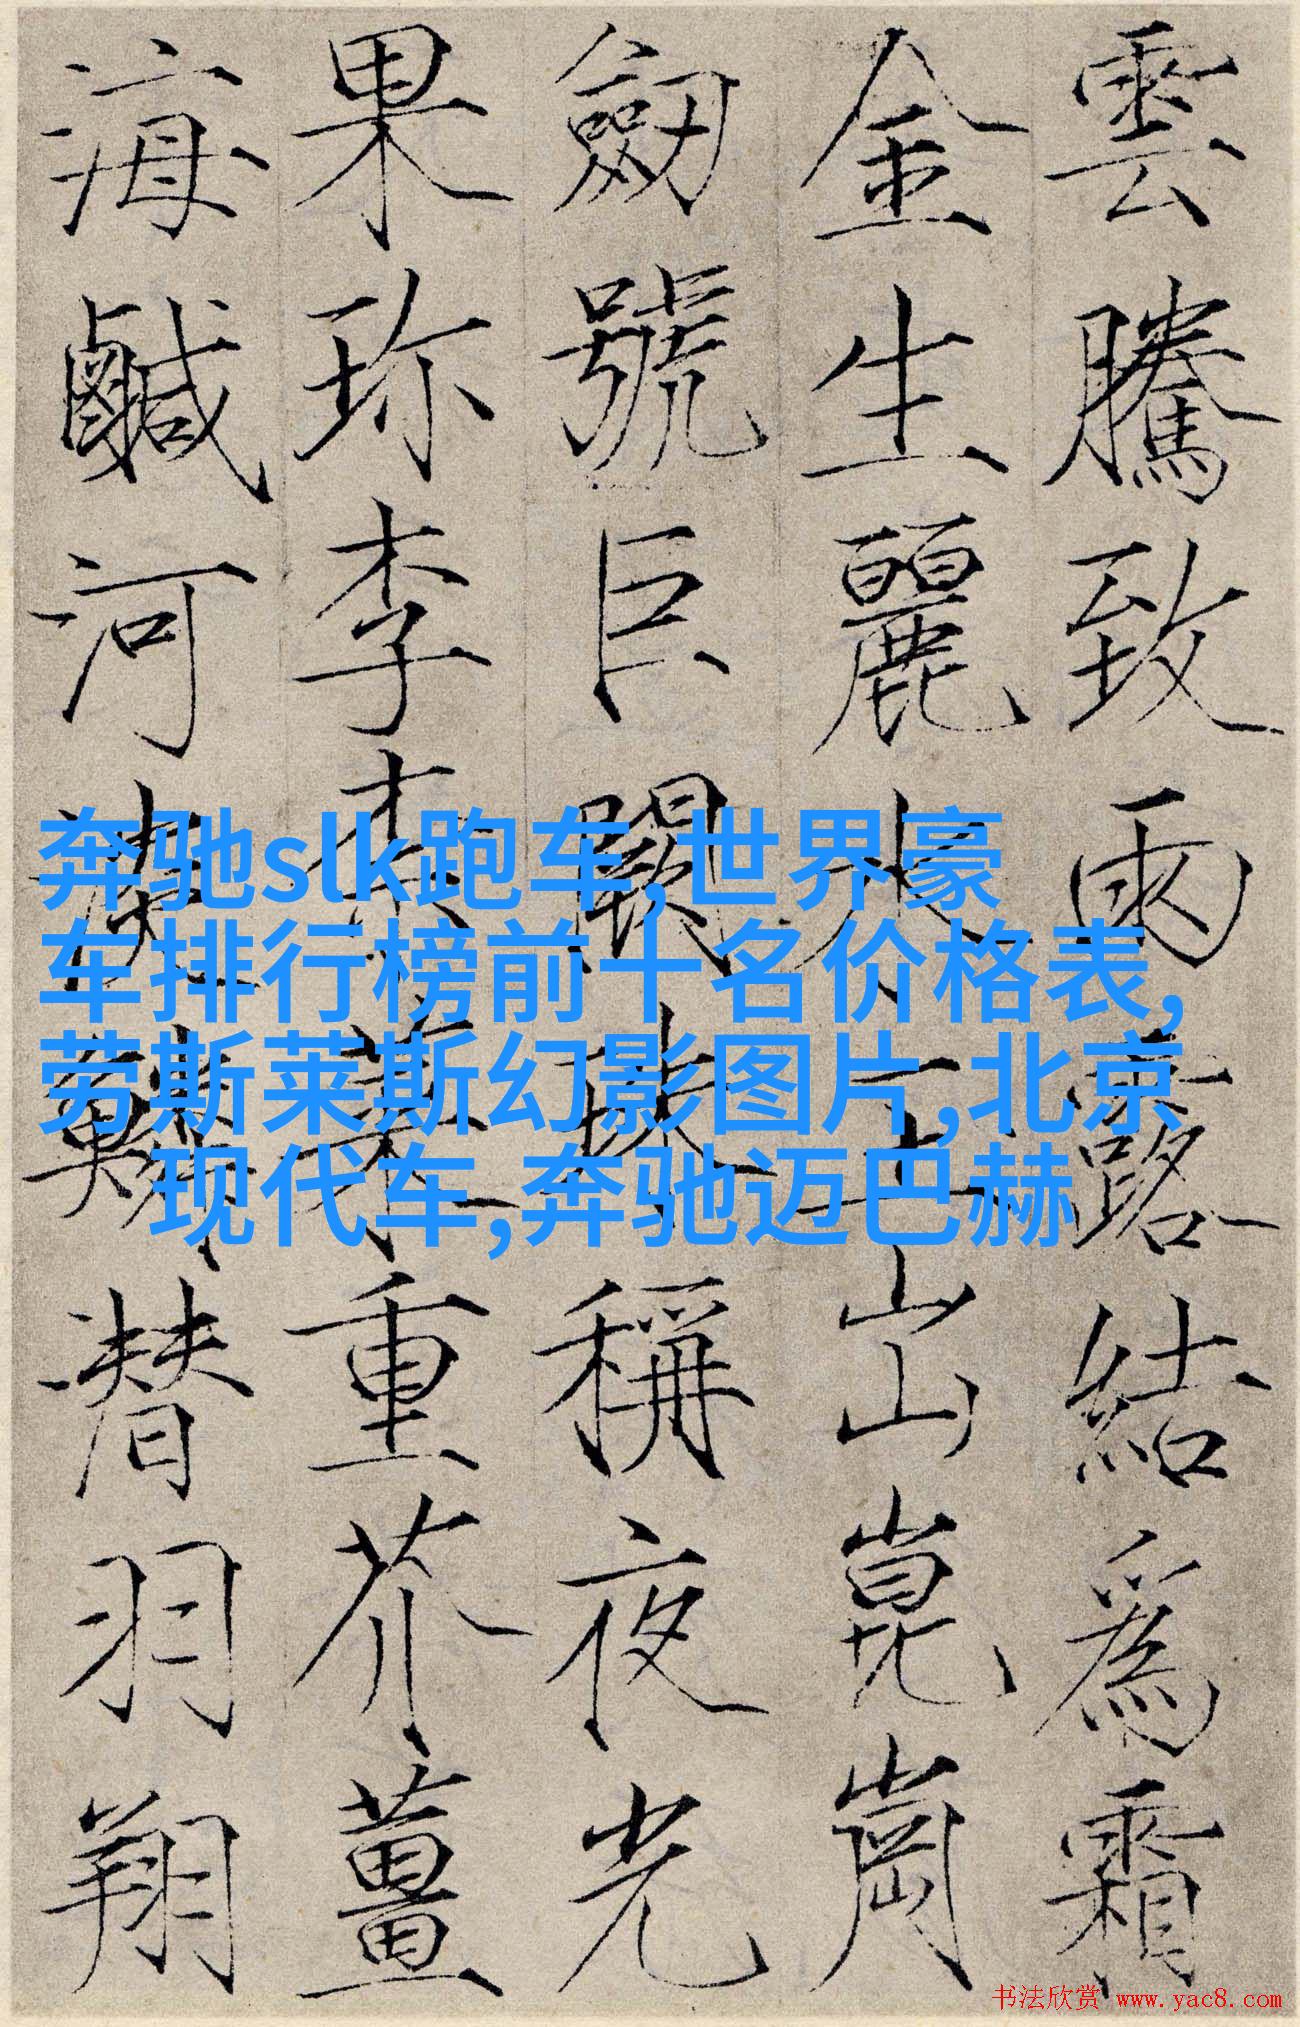 雲騰致雨露結爲霜
金生麗水玉出崑崗
劒號巨闕珠稱夜光
果珎李柰菜重芥薑
海鹹河淡鱗潜羽翔
奔驰slk跑车,世界豪
车排行榜前十名价格表,
劳斯莱斯幻影图片,北京
现代车,奔驰迈巴赫
书法欣赏 www.yac8.com